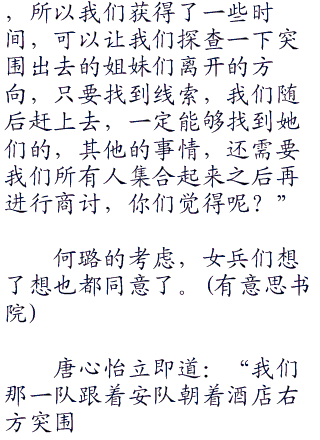 ，所以我们获得了一些时
间，可以让我们探查一下突
围出去的姐妹们离开的方
向，只要找到线索，我们随
后赶上去，一定能够找到她
们的，其他的事情，还需要
我们所有人集合起来之后再
进行商讨，你们觉得呢？”
何璐的考虑，女兵们想
了想也都同意了。(有意思书
院)
唐心怡立即道：“我们
那一队跟着安队朝着酒店右
方突围